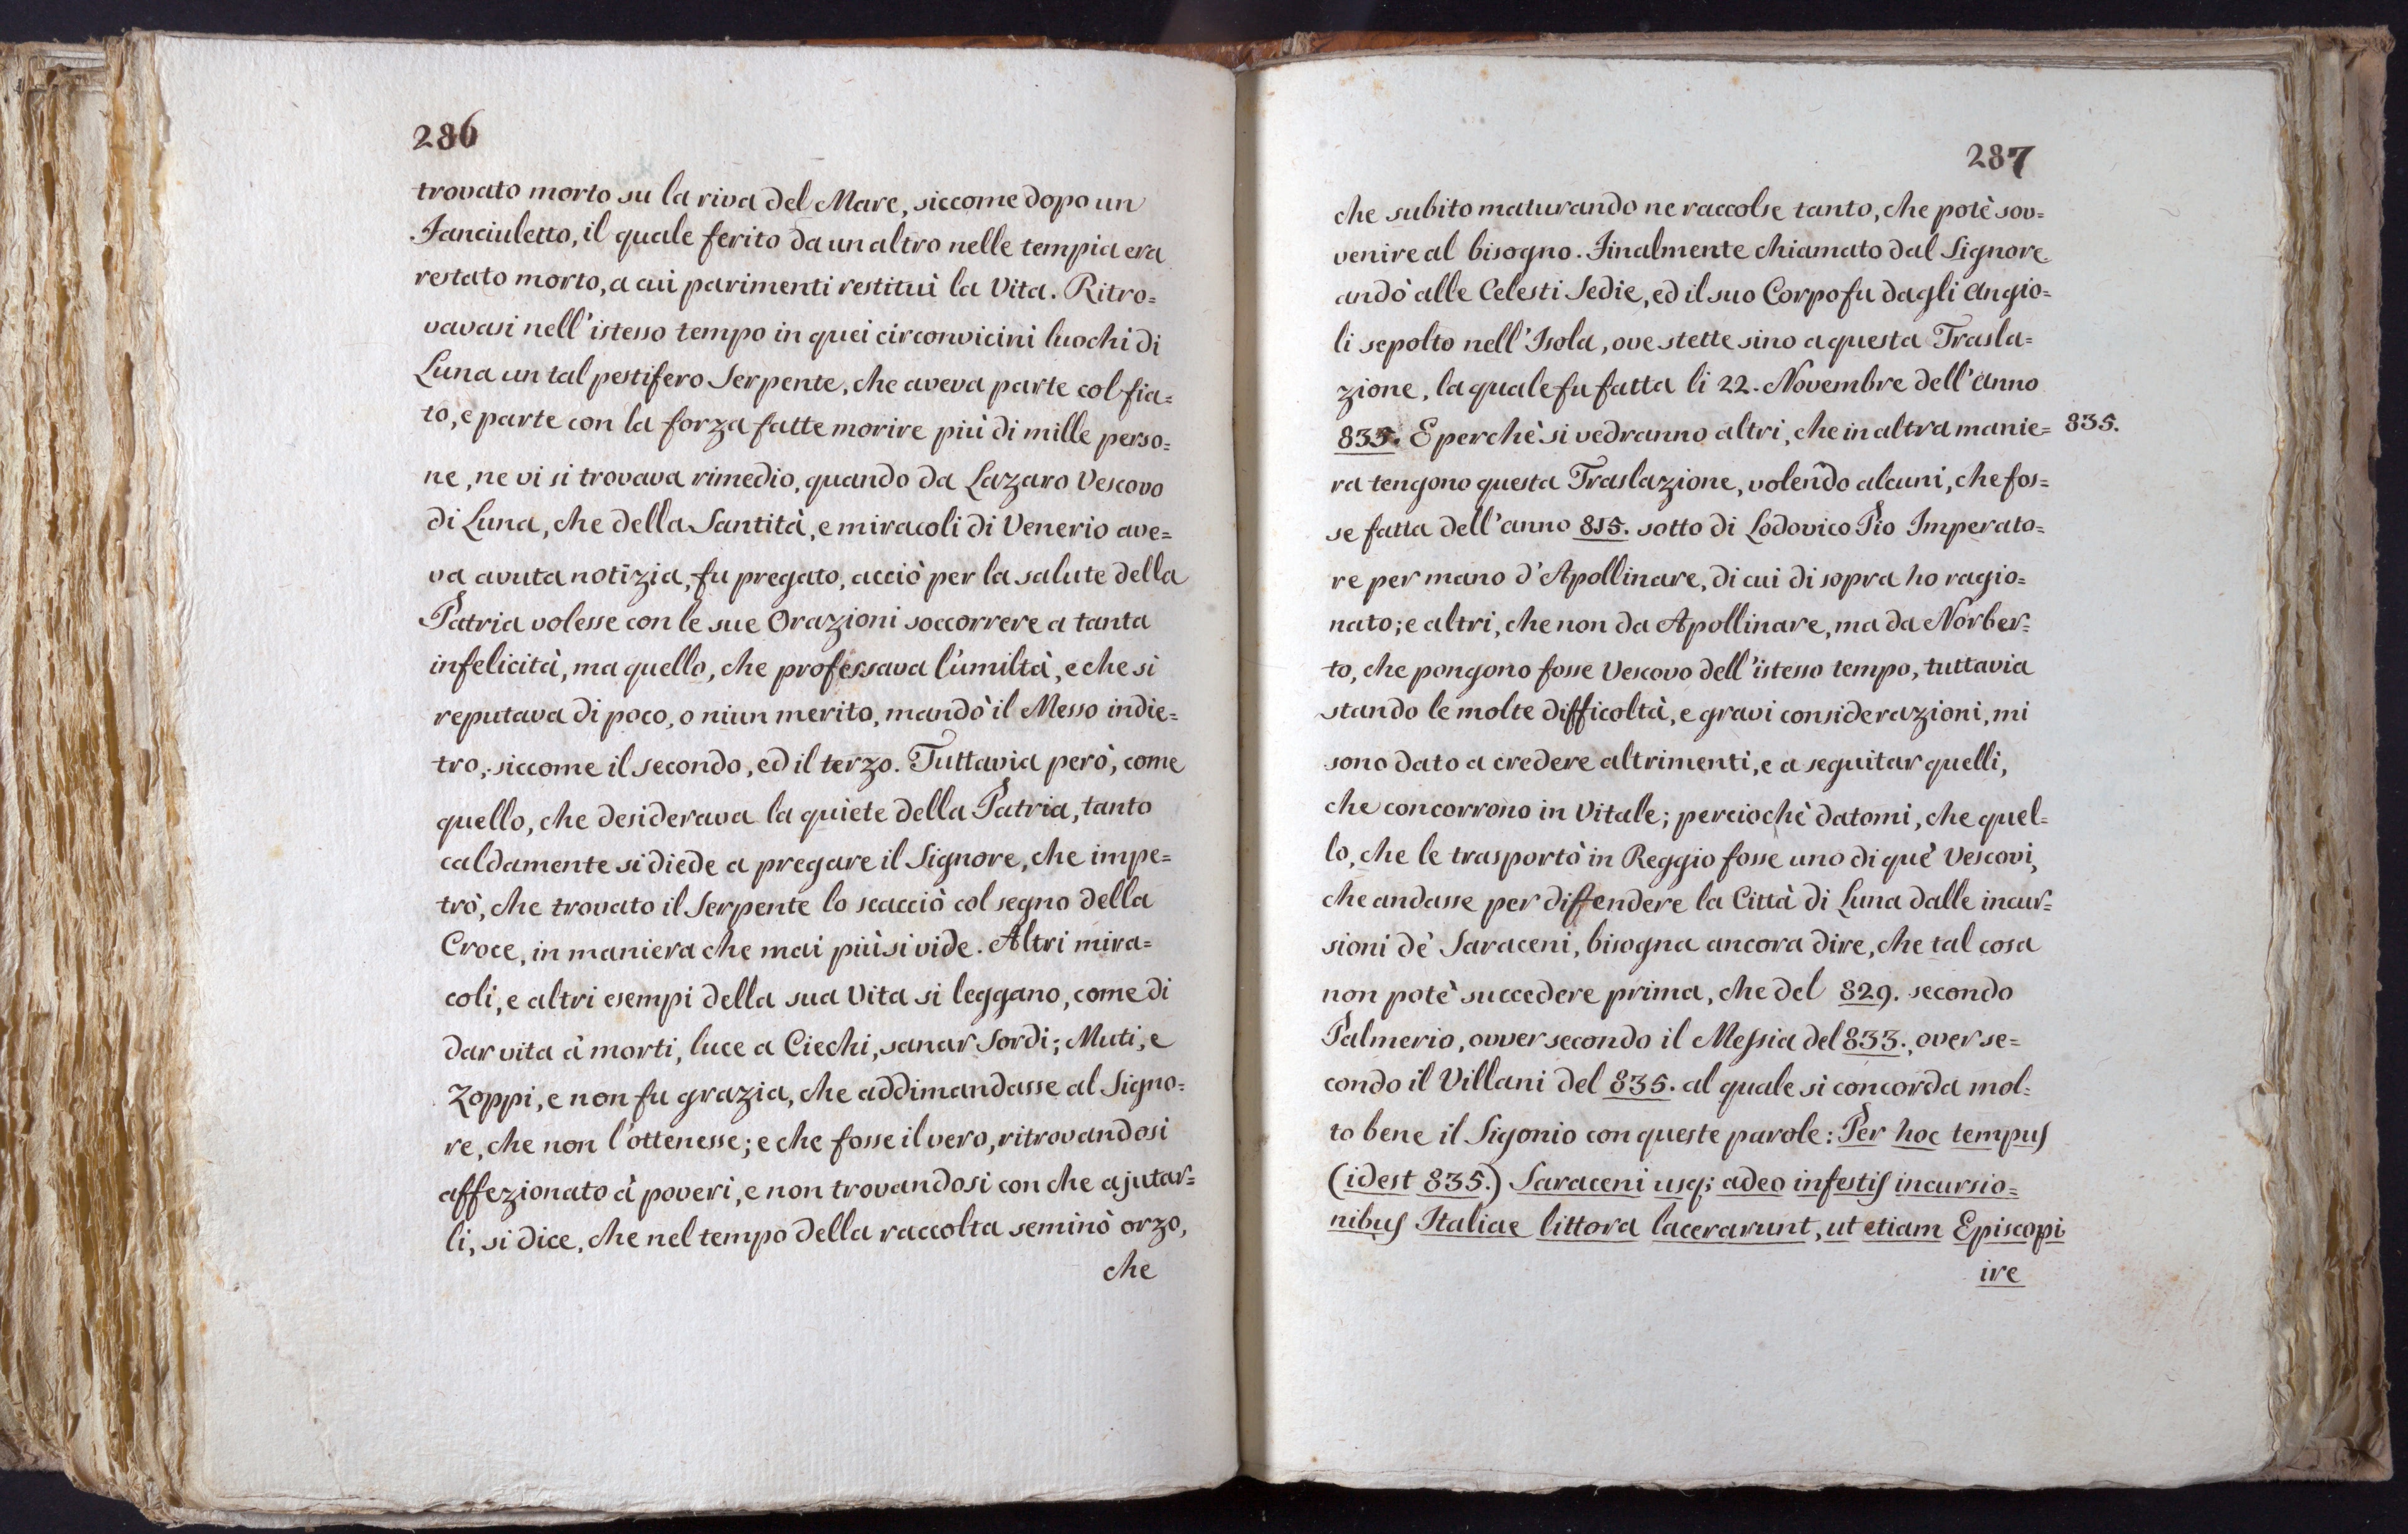 286
trovato morto su la riva del Mare, siccome dopo un
Fanciuletto, il quale ferito da un altro nelle tempia era
restato morto, a cui parimenti restituì la Vita. Ritro=
vavasi nell'istesso tempo in quei circonvicini luochi di
Luna un tal pestifero Serpente, che aveva parte col fia=
to, e parte con la forza fatte morire più di mille perso=
ne, ne vi si trovava rimedio, quando da Lazaro Vescovo
di Luna, che della Santità, e miracoli di Venerio ave=
va avuta notizia, fu pregato, acciò per la salute della
Patria volesse con le sue Orazioni soccorrere a tanta
infelicità, ma quello, che professava l'umiltà, e che si
reputava di poco, o niun merito, mandò il Messo indie=
tro, siccome il secondo, ed il terzo. Tuttavia però, come
quello, che desiderava la quiete della Patria, tanto
caldamente si diede a pregare il Signore, che impe=
trò, che trovato il Serpente lo scacciò col segno della
Croce, in maniera che mai più si vide. Altri mira=
coli, e altri esempi della sua Vita si leggano, come di
dar vita à morti, luce a Ciechi, sanar Sordi; Muti, e
Zoppi, e non fu grazia, che addimandasse al Signo=
re, che non l'ottenesse; e che fosse il vero, ritrovandosi
affezionato à poveri, e non trovandosi con che ajutar=
li, si dice, che nel tempo della raccolta seminò orzo,
che
287
che subito maturando ne raccolse tanto, che potè sov=
venire al bisogno. Finalmente chiamato dal Signore
andò alle Celesti Sedie, ed il suo Corpo fu dagli Angio=
li sepolto nell'Isola, ove stette sino a questa Trasla=
zione, la quale fu fatta li 22. Novembre dell'Anno
835. E perchè si vedranno altri, che in altra manie= 835.
ra tengono questa Traslazione, volendo alcuni, che fos=
se fatta dell'anno 815. sotto di Lodovico Pio Imperato=
re per mano d'Apollinare, di cui di sopra ho ragio=
nato; e altri, che non da Apollinare, ma da Norber=
to, che pongono fosse Vescovo dell'istesso tempo, tuttavia
stando le molte difficoltà, e gravi considerazioni, mi
sono dato a credere altrimenti, e a seguitar quelli,
che concorrono in Vitale; perciochè datomi, che quel=
lo, che le trasportò in Reggio fosse uno di què Vescovi,
che andasse per diffendere la Città di Luna dalle incur=
sioni dè Saraceni, bisogna ancora dire, che tal cosa
non potè succedere prima, che del 829. secondo
Palmerio, ovver secondo il Messia del 833., over se=
condo il Villani del 835. al quale si concorda mol=
to bene il Sigonio con queste parole: Per hoc tempus
(idest 835.) Saraceni usq; adeo infestis incursio=
nibus Italiae littora lacerarunt, ut etiam Episcopi
ire